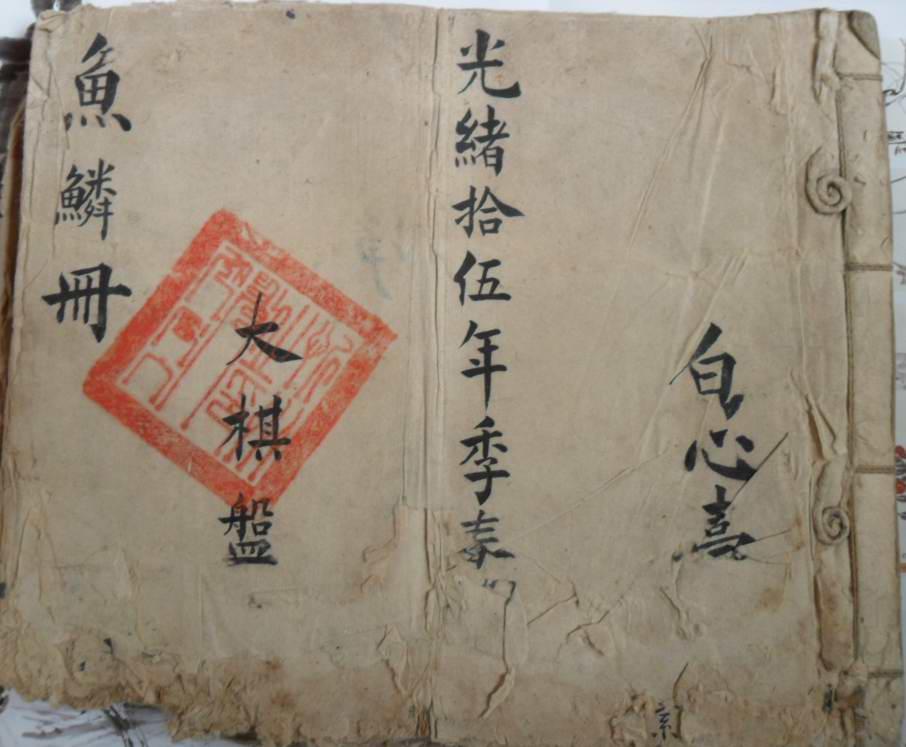 白心意
光緒拾伍年季春
大棋盤
魚鱗冊